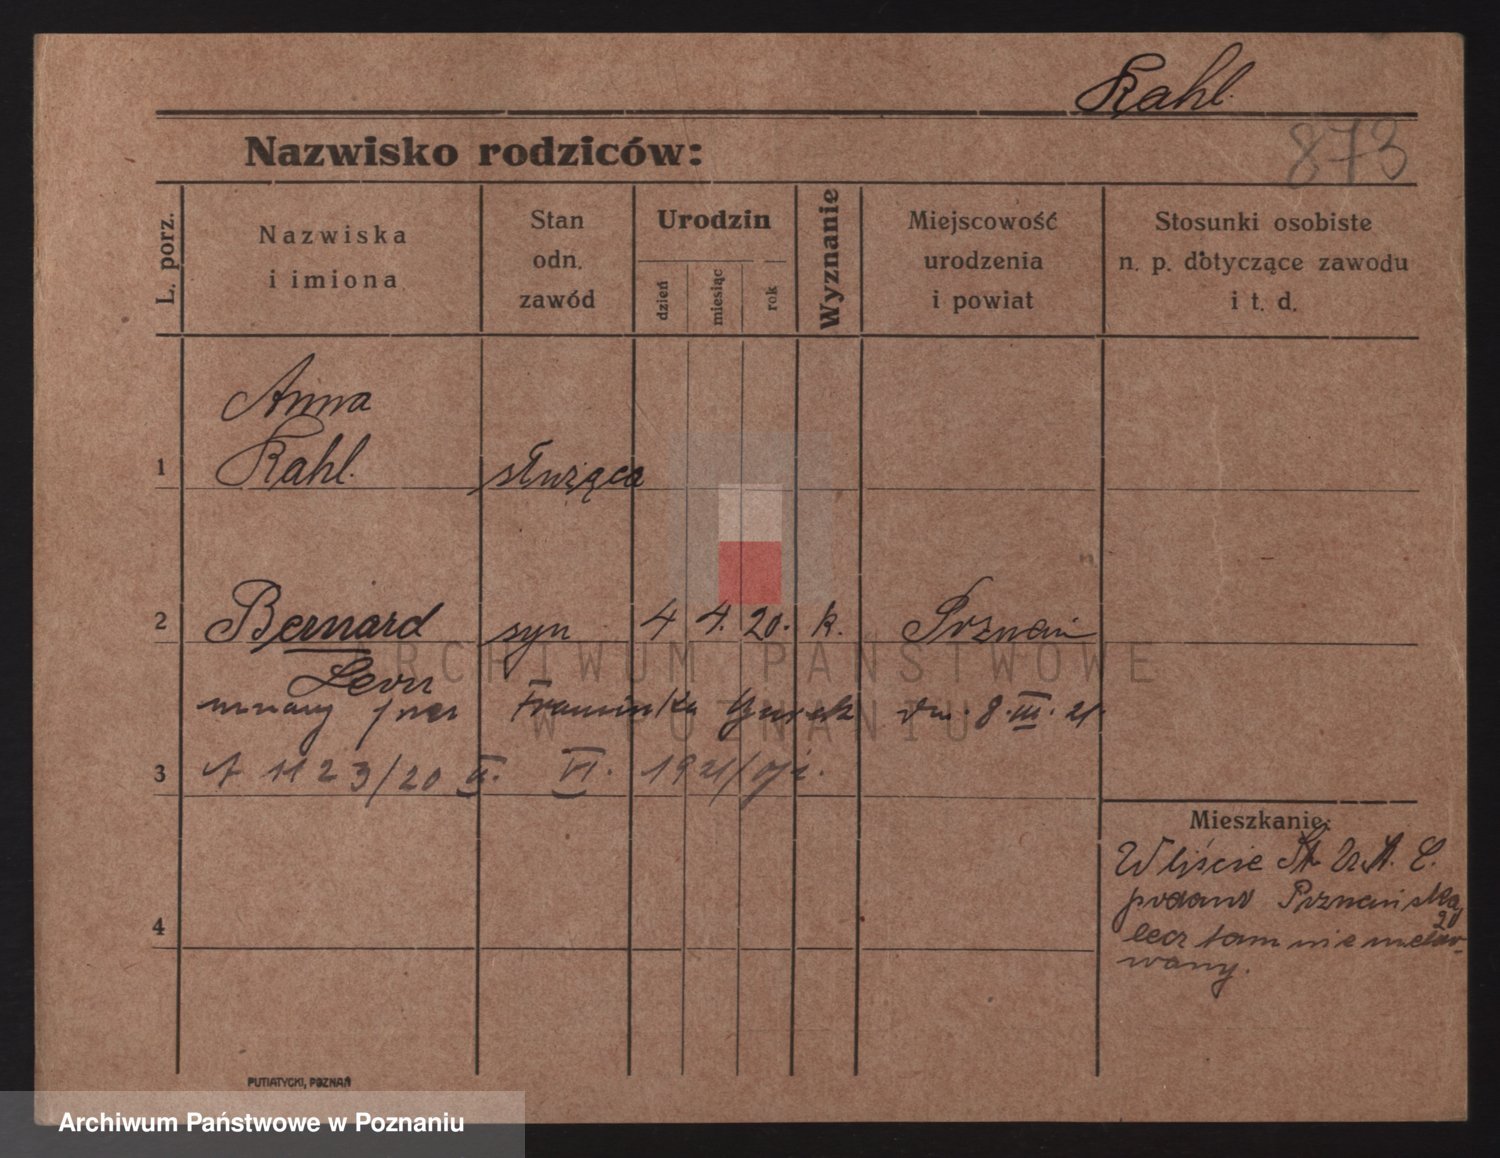 Kahl.
Nazwisko rodziców:
873
L. porz.
Nazwiska
i imiona
Stan
odn.
zawód
Urodzin
dzień
miesiąc
rok
Wyznanie
Miejscowość
urodzenia
i powiat
Stosunki osobiste
n. p. dotyczące zawodu
i t. d.
Anna
1 Kahl. służąca
2 Bernard syn 4 4. 20. k. Poznań
Leon
uznany przez Franciszka dn. 8. III. 21.
3 1123/20 VI. 1921
Mieszkanie:
W liście St. Z. A. C.
podano Poznańska
20
lecz tam nie meldo-
wany.
4
PUTIATYCKI, POZNAŃ
ARCHIWUM PAŃSTWOWE
W POZNANIU
Archiwum Państwowe w Poznaniu